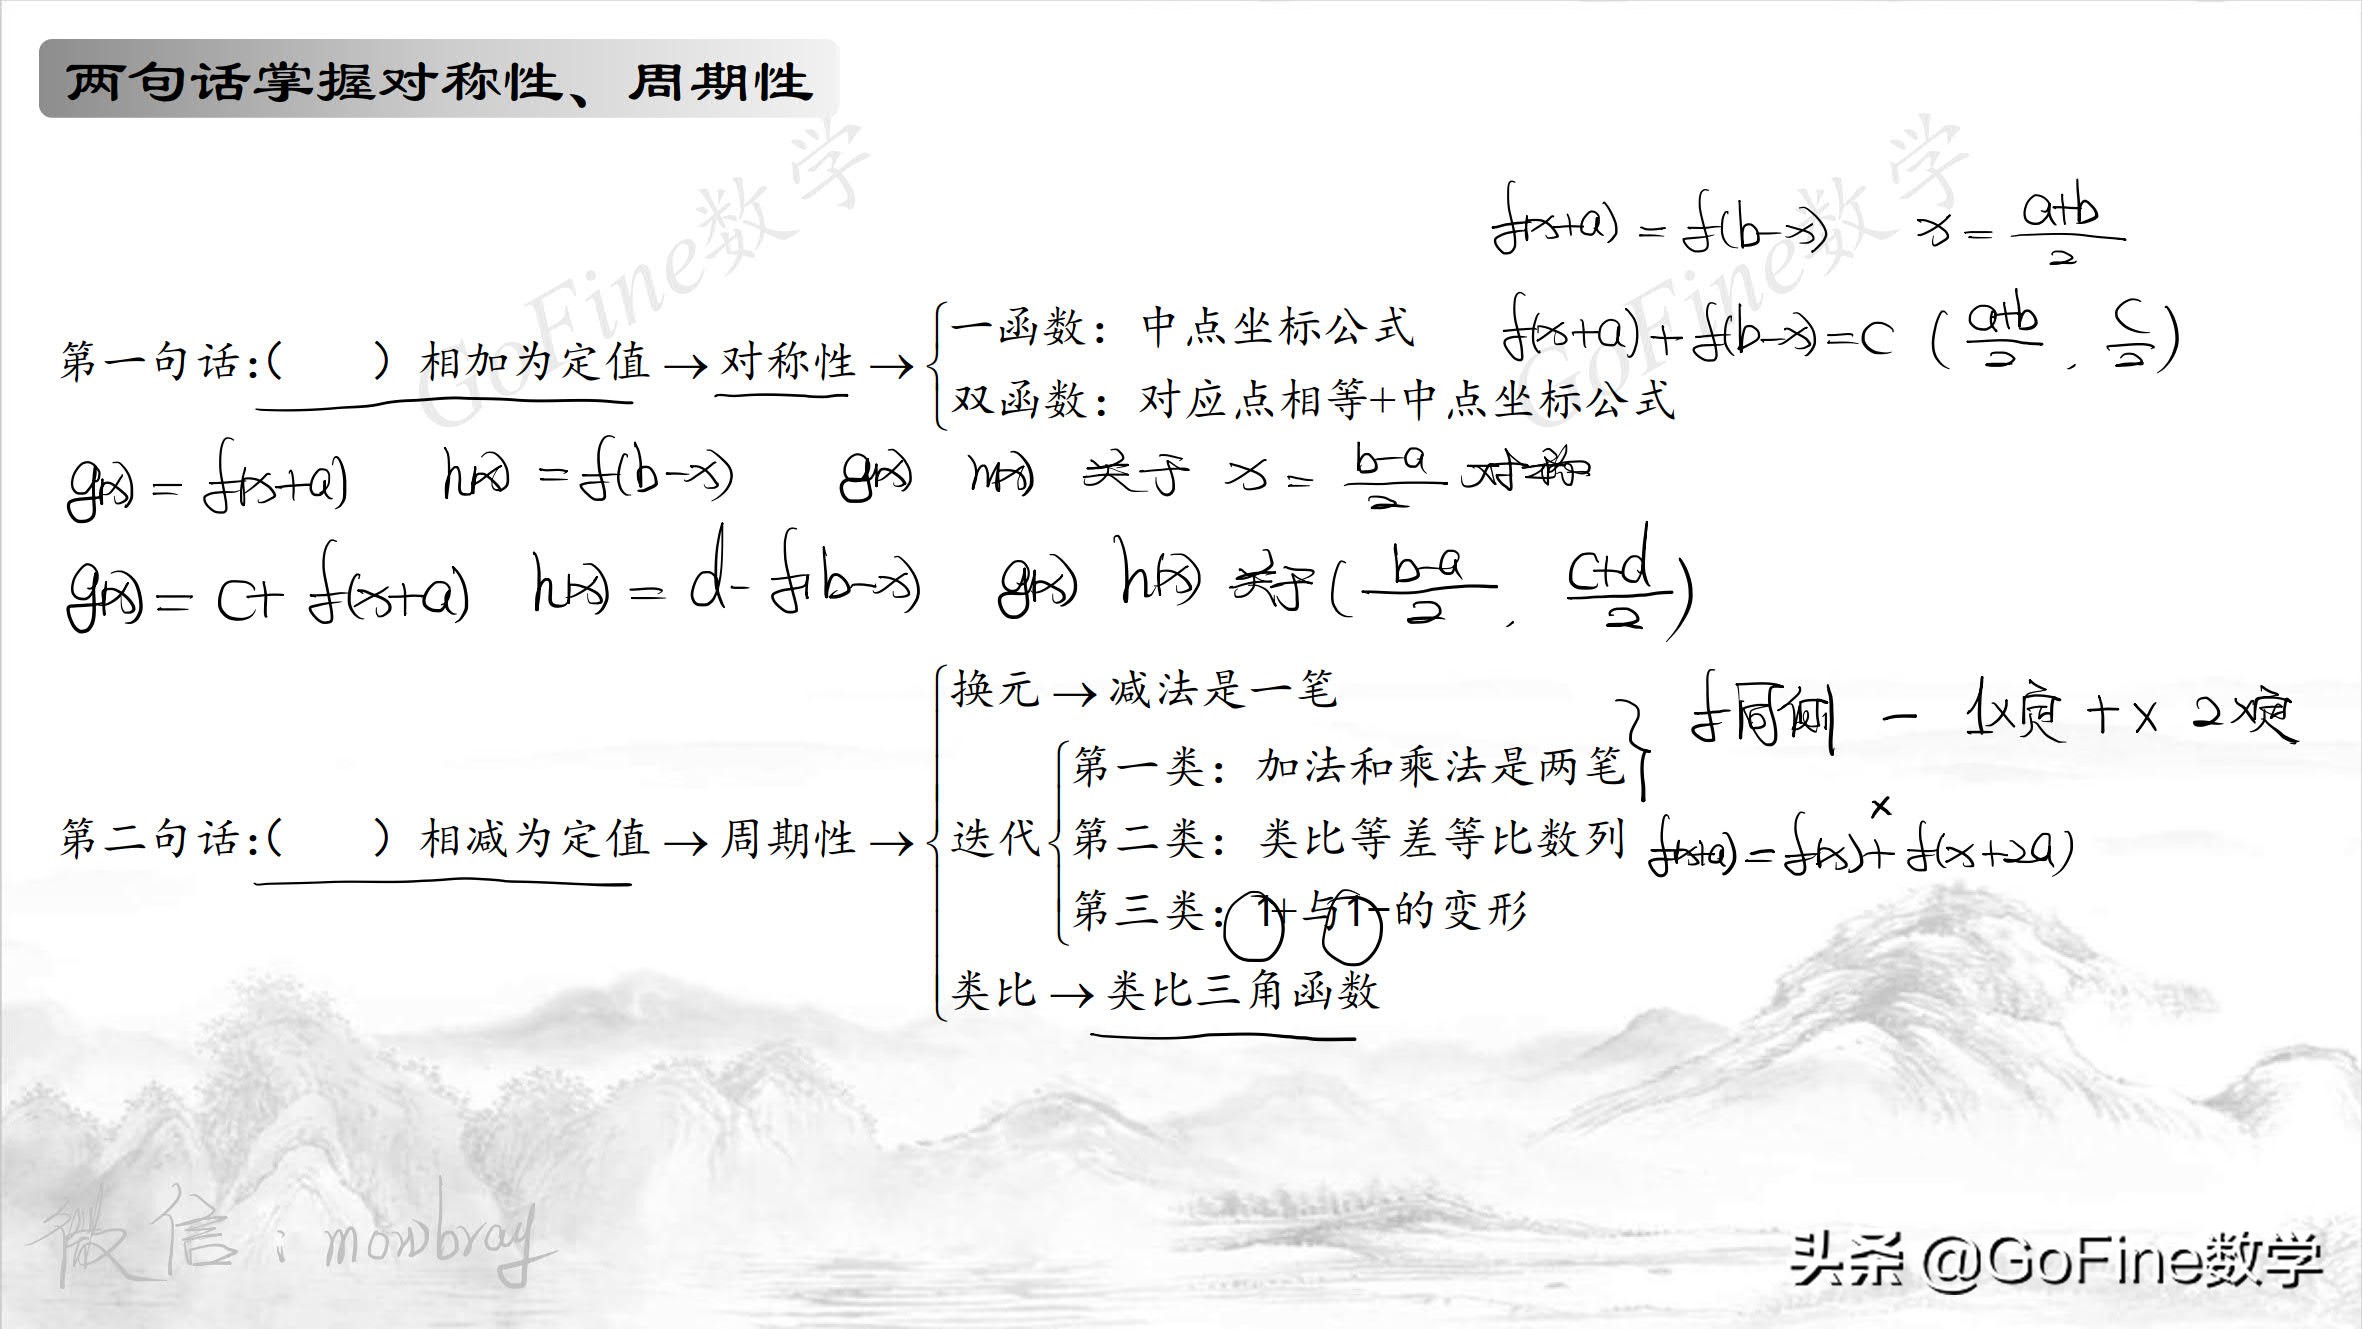 两句话掌握对称性、周期性
f(x+a)=f(b-x) x=\frac{a+b}{2}
一函数：中点坐标公式 f(x+a)+f(b-x)=c (\frac{a+b}{2}, \frac{c}{2})
第一句话:( )相加为定值→对称性→
双函数：对应点相等+中点坐标公式
g(x)=f(x+a) h(x)=f(b-x) g(x) h(x) 关于 x=\frac{b-a}{2} 对称
g(x)=c+f(x+a) h(x)=d-f(b-x) g(x) h(x) 关于(\frac{b-a}{2}, \frac{c+d}{2})
换元→减法是一笔 f同侧 - 1x定 +x 2x定
第一类：加法和乘法是两笔
第二句话:( )相减为定值→周期性→ 迭代 第二类：类比等差等比数列 f(x+a)=f(x)+f(x+2a)
×
第三类：1+与1-的变形
类比→类比三角函数
GoFine数学
GoFine数学
微信：mowbray
头条 @GoFine数学